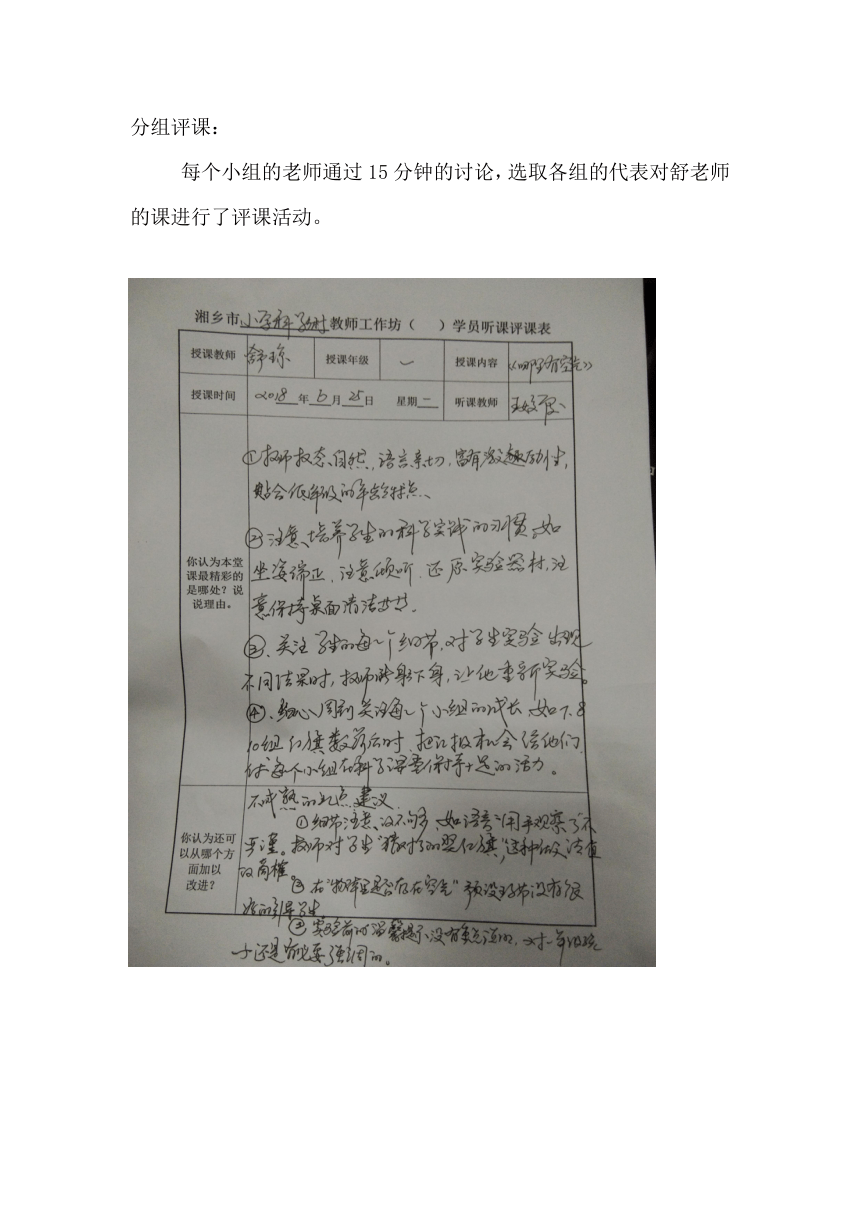 分组评课：
每个小组的老师通过 15 分钟的讨论，选取各组的代表对舒老师
的课进行了评课活动。
湘乡市小学科学 教师工作坊（ ）学员听课评课表
授课教师 舒琼 授课年级 一 授课内容 《哪里有空气》
授课时间 2018年6月25日 星期二 听课教师
你认为本堂
课最精彩的
是哪处？说
说理由。
①教师教态自然，语言亲切，富有激趣励性，
贴合低年级的年龄特点、
②注意培养学生的科学实践的习惯，如
坐姿端正、注意倾听、还原实验器材，注
意保持桌面清洁等等.
③、关注学生的每一个细节，对学生实验出现
不同结果时，教师 下身，让他重新实验。
④、细心周到关注每一个小组的成长，如7、8
10组红旗数落后时，把汇报机会给他们，
使每个小组在科学课堂保持十足的活力。
你认为还可
以从哪个方
面加以
改进？
不成熟的几点建议
①细节注意、没不够多，如语言“用手观察”不
严谨。教师对学生“猜对了的奖红旗”，这种做法值
得商榷。
② 在“物体里是否存在空气”预设环节没有很
好的引导学生
③ 实验前的温馨提示没有 ，对一年级孩
子还是有必要强调的。